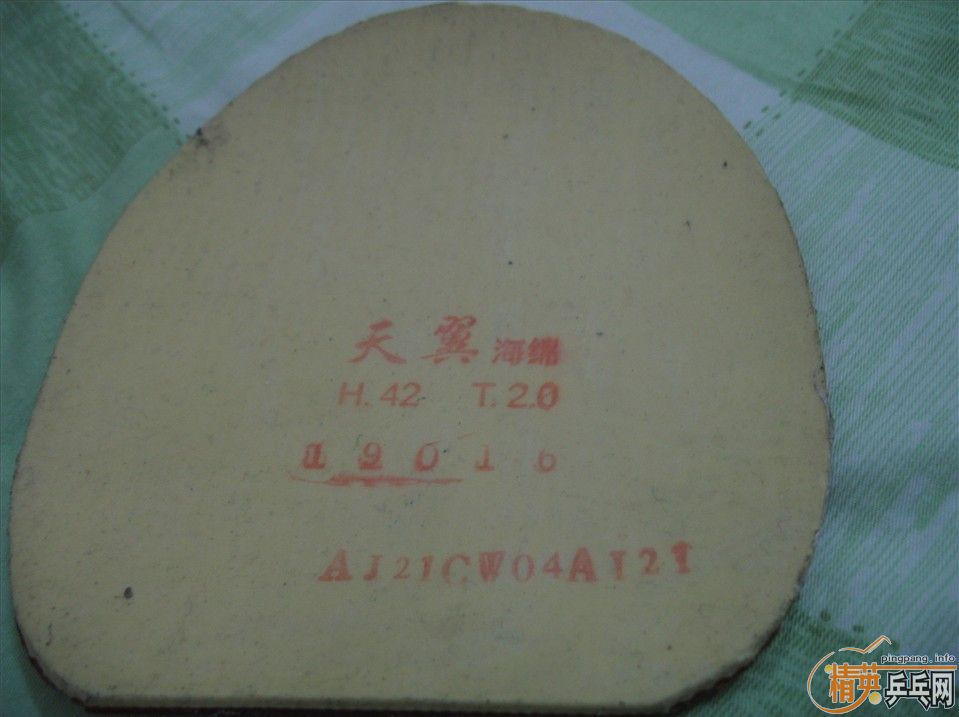 天翼海绵
H.42 T.2.0
19016
AJ21CW04AJ21
pingpang.info
精英乒乓网